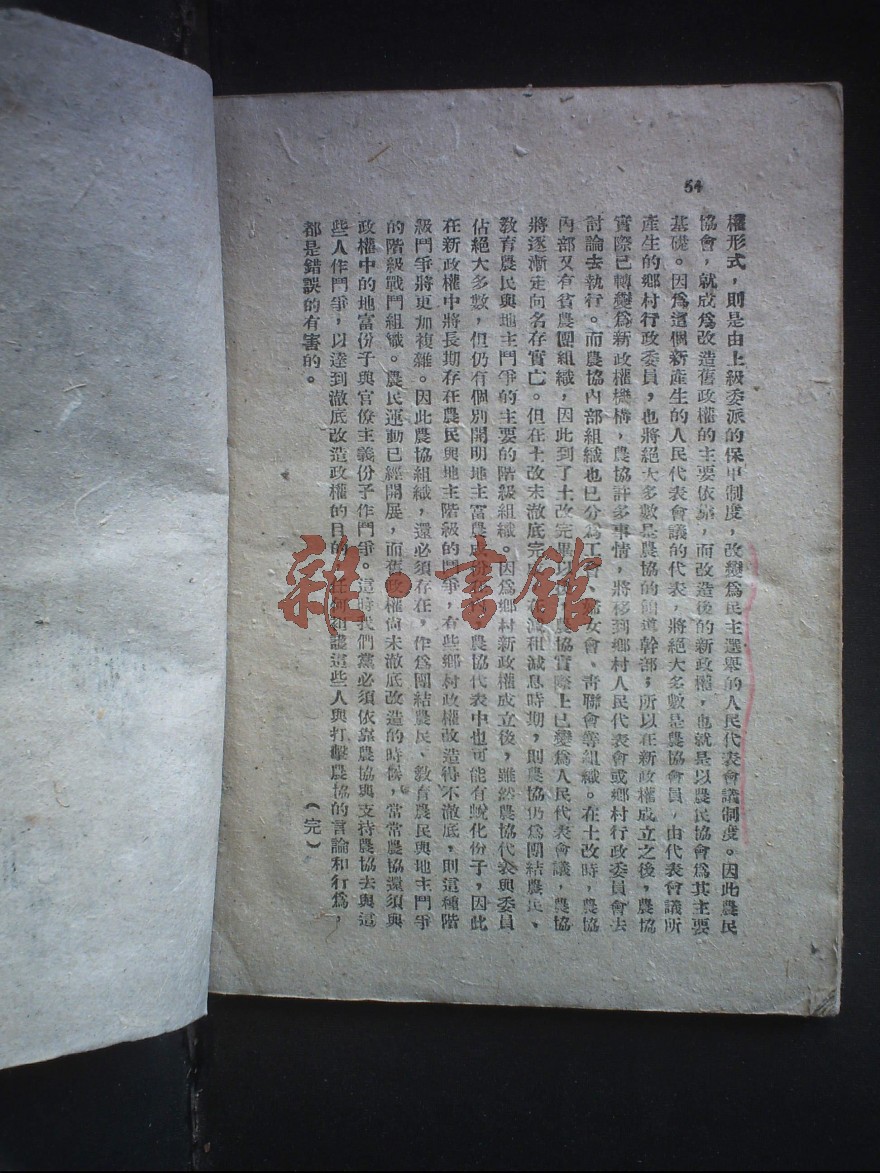 54
權形式，則是由上級委派的保甲制度，改變爲民主選舉的人民代表會議制度。因此農民
協會，就成爲改造舊政權的主要依靠，而改造後的新政權，也就是以農民協會爲其主要
基礎。因爲這個新產生的人民代表會議的代表，將絕大多數是農協會員，由代表會議所
產生的鄉村行政委員，也將絕大多數是農協的領導幹部；所以在新政權成立之後，農協
實際已轉變爲新政權機構，農協許多事情，將移到鄉村人民代表會或鄉村行政委員會去
討論去執行。而農協內部組織也已分爲工會、婦女會、青聯會等組織。在土改時，農協
內部又有貧農團組織，因此到了土改完畢以後，農協實際上已變爲人民代表會議，農協
將逐漸走向名存實亡。但在土改未澈底完 減租減息時期，則農協仍爲團結農民、
教育農民與地主鬥爭的主要的階級組織。因爲鄉村新政權成立後，雖然農協代表與委員
佔絕大多數，但仍有個別開明地主富農成份 農協代表中也可能有蛻化份子，因此
在新政權中將長期存在農民與地主階級的鬥爭，有些鄉村政權改造得不澈底，則這種階
級鬥爭將更加複雜。因此農協組織，還必須存在，作爲團結農民、教育農民與地主鬥爭
的階級戰鬥組織。農民運動已經開展，而舊政權尚未澈底改造的時候，常常農協還須與
政權中的地富份子與官僚主義份子作鬥爭。這時我們黨必須依靠農協與支持農協去與這
些人作鬥爭，以達到澈底改造政權的目的，任何 這些人與打擊農協的言論和行爲，
都是錯誤的有害的。
（完）
雜·書館